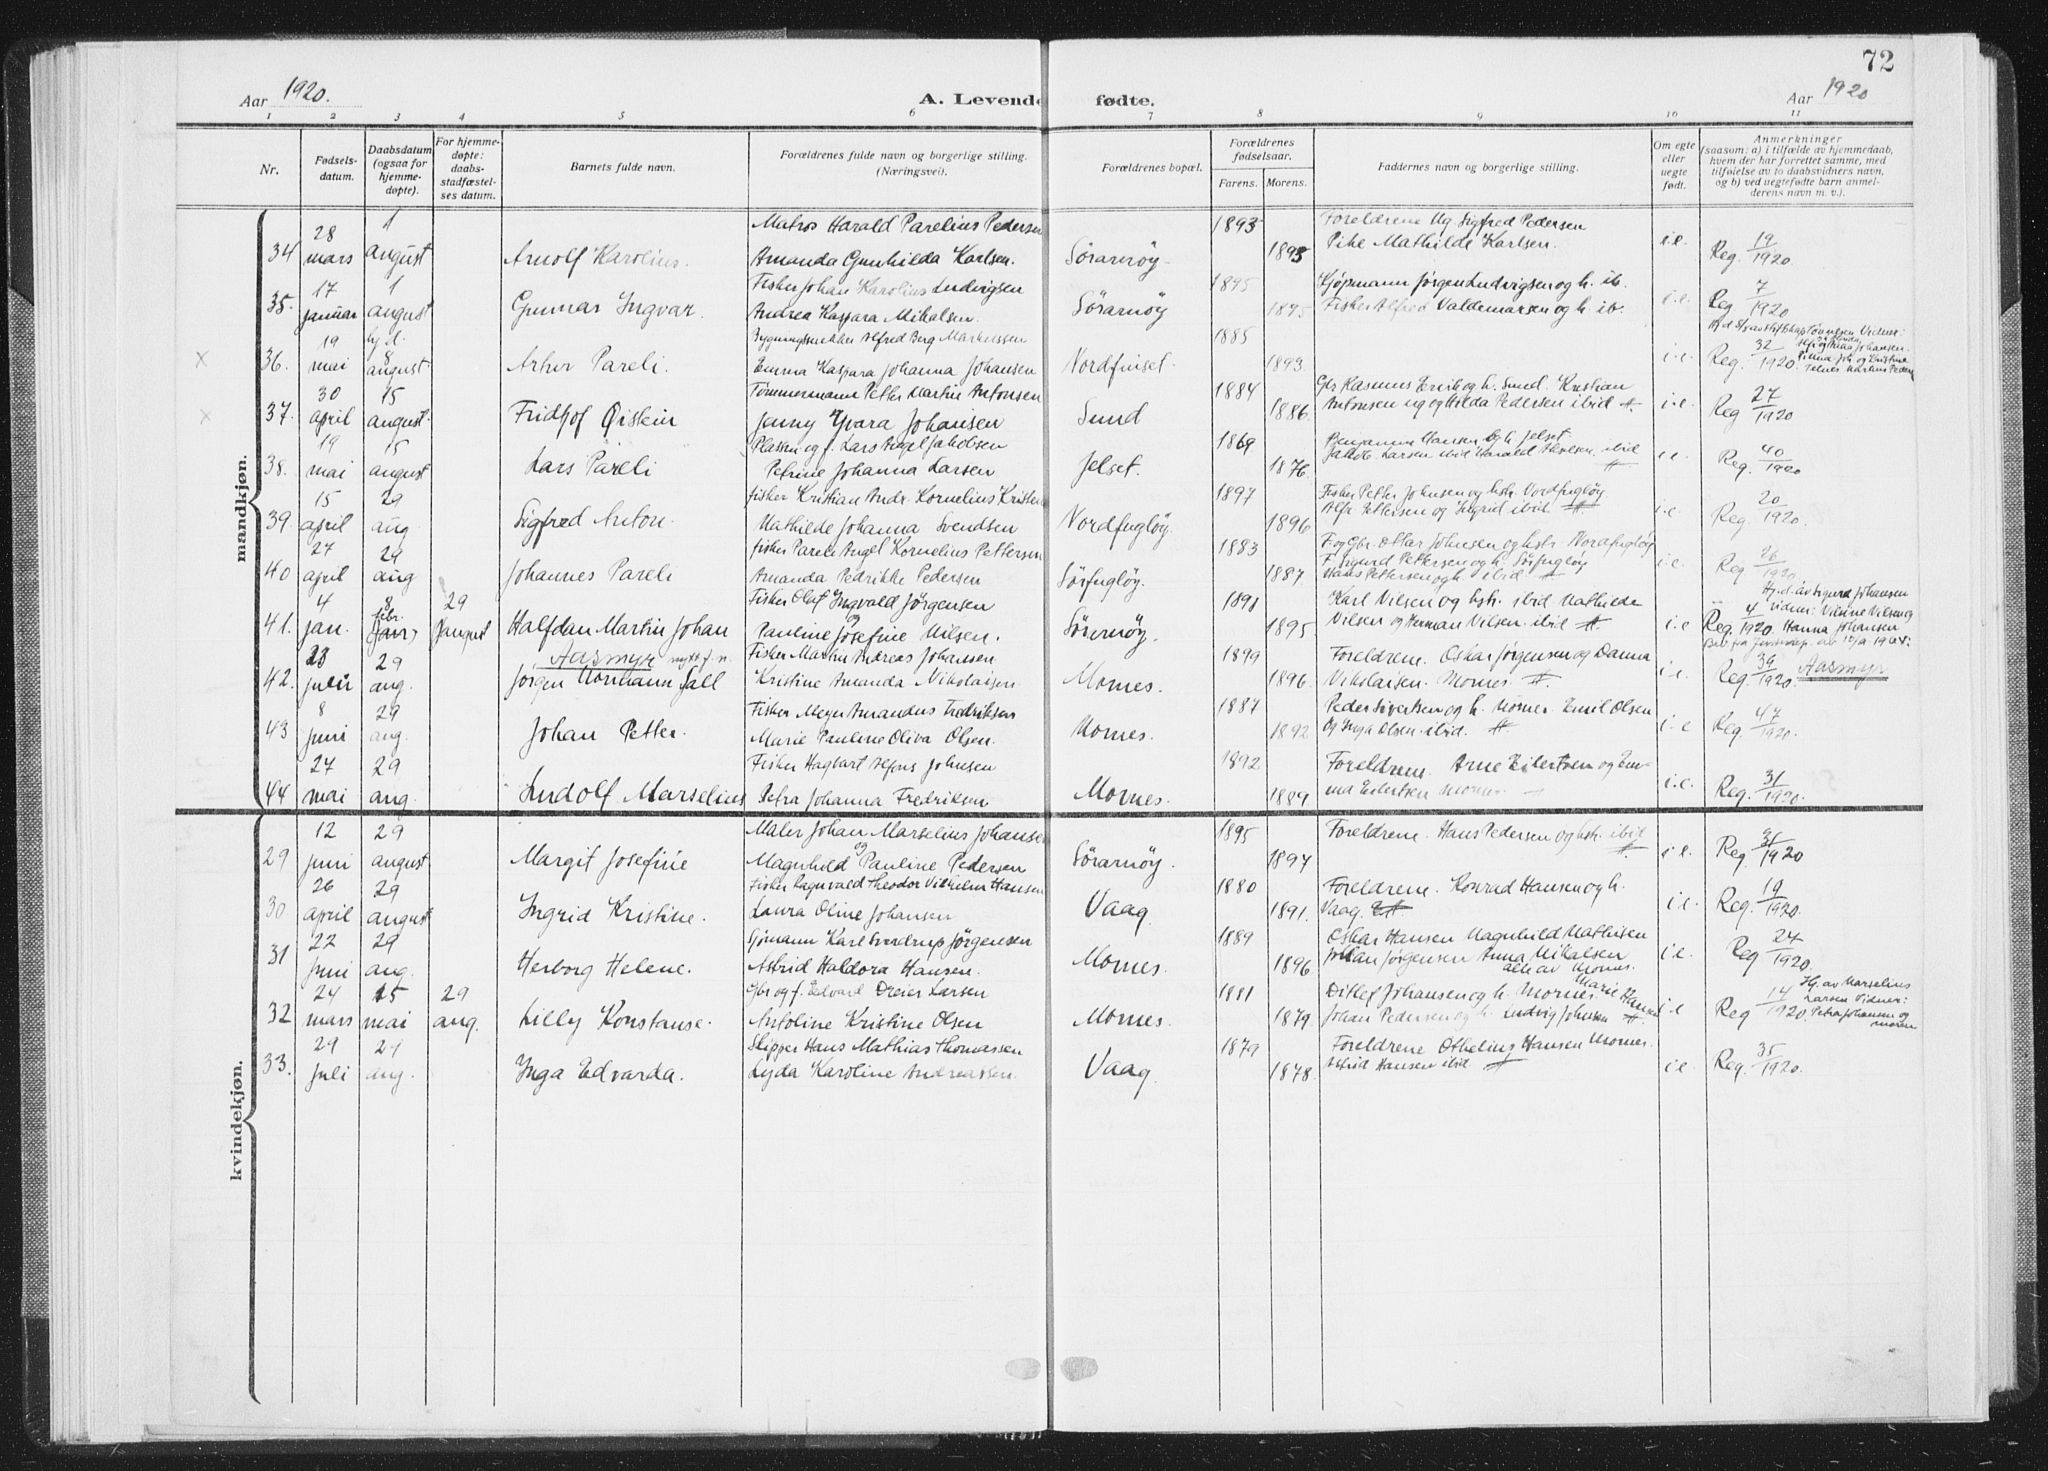 72
Aar 1920.
A. Levende fødte.
Aar 1920
1 2 3 4 5 6 7 8 9 10 11
Nr.
Fødsels-
datum.
Daabsdatum
(ogsaa for
hjemme-
døpte).
For hjemme-
døpte:
daabs-
stadfæstel-
ses datum.
Barnets fulde navn.
Forældrenes fulde navn og borgerlige stilling.
(Næringsvei).
Forældrenes bopæl.
Forældrenes
fødselsaar.
Farens. Morens.
Faddernes navn og borgerlige stilling.
Om egte
eller
uegte
født.
Anmerkninger
(saasom: a) i tilfælde av hjemmedaab,
hvem der har forrettet samme, med
tilføielse av to daabsvidners navn,
og b) ved uegtefødte barn anmel-
derens navn m. v.).
mandkjøn.
28 1 Matros Harald Parelius Pedersen 1893 Foreldrene Ug Sigfred Pedersen
34 mars august Arnolf Karolius. Amanda Gunhilda Karlsen. Sörarnöy 1893 Pike Mathilde Karlsen. i.e. Reg. 19/1920.
17 1 Fisker Johan Karolius Ludvigsen 1895 Kjøpmann Jørgen Ludvigsen og h. ib.
35. januar august Gunnar Ingvar. Andrea Kaspara Mikalsen. Sörarnöy 1895 Fisker Alfred Valdemarsen og h. ib. i.e. Reg 7/1920
19 hj. d. Alfred Berg Markussen 1885
36. mai 8 august Artur Pareli. Emma Kaspara Johanna Johansen Nordfinset. 1893. i.e. Reg. 32/1920.
30 15 Tømmermann Petter Martin Antonsen 1884 Gbr Rasmus Erik og h. Sund. Kristian
37. april august. Fridhof Øistein Jenny Yvara Johansen Sund 1886. Antonsen ug og Hilda Pedersen ibid i.e. Reg 27/1920
19 15 Plassm og f. Lars Angel Jakobsen 1869 Benjamin Hansen og h Jelset
38. mai august Lars Pareli Petrine Johanna Larsen Jelset. 1876 Jakob Larsen ibid Harald ibid i.e. Reg. 40/1920
15 29 fisker Kristian Andr. Kornelius Kristen 1897 Fisker Petter Johnsen og hstr. Nordfugløy
39. april aug. Sigfred Anton. Mathilde Johanna Svendsen Nordfugløy. 1896 Alfr Pettersen og Ingrid ibid i.e. Reg. 20/1920.
27 29 fisker Pareli Angel Kornelius Pettersen 1883 F. og Gbr. Ottar Johnsen og hstr. Nordfugløy
40 april aug Johannes Pareli Amanda Pedrikke Pedersen Sørfugløy. 1887 F. Sigurd Pettersen og h. Sørfugløy i.e. Reg 26/1920
Hans Pettersen og h. ibid
4 8 29 Fisker Oluf Ingvald Jørgensen 1891 Karl Nilsen og hstr. ibid Mathilde Hj. d. av Sigurd Johansen
41. jan. febr. august Halfdan Martin Johan Pauline Josefine Nilsen. Sörarnöy. 1895 Nilsen og Herman Nilsen ibid i.e Reg. 4/1920. Vidner: Vilrine Nilsen og Hanna Johansen
23 29 Aasmyr nytt f. n. Fisker Martin Andreas Johansen 1899 Foreldrene. Oskar Jørgensen og Danna
42. juli aug. Jørgen Normann Fall Kristine Amanda Nikolaisen Mornes. 1896. Nikolaisen. Mornes i.e. Reg. 39/1920. Aasmyr
8 29 Fisker Meyer Amandus Fredriksen 1887 Peder Sivertsen og h. Mornes. Emil Olsen
43 juni aug. Johan Petter. Marie Pauline Oliva Olsen. Mornes. 1892 Og Inga Olsen ibid. i.e Reg. 47/1920.
27 29 Fisker Hagbart Alfons Johnsen 1892 Foreldrene. Arne Eilertsen og Em-
44 mai aug. Ludolf Marselius Petra Johanna Fredriksen Mornes. 1889 ma Eilertsen Mornes i.e. Reg. 31/1920.
kvindekjøn.
12 29 Maler Johan Marselius Johansen 1895 Foreldrene. Hans Pedersen og hstr. ibid
29 juni august Margit Josefine og Magnhild Pauline Pedersen Sörarnöy. 1897 i.e. Reg. 31/1920
26 29 Fisker Ragnvald Theodor Vilhelm Hansen 1880 Foreldrene. Konrad Hansen og h.
30 april august Ingrid Kristine. Laura Oline Johansen Vaag. 1891. Vaag. i.e. Reg. 19/1920.
22 29 Sjömann Karl Sverdrup Jørgensen 1889 Oskar Hansen Magnhild Mathisen
31 juni aug. Herborg Helene. Astrid Haldora Hansen. Mornes. 1896 Johan Jørgensen Anna Mikalsen alle av Mornes. i.e. Reg 24/1920
24 15 29 Gbr og f. Edvard Dreier Larsen 1881 Ditlef Johansen og h. Mornes Marie Hansen Hj. av Marselius
32 mars mai aug. Lilly Konstanse. Antoline Kristine Olsen Mornes. 1879. Johan Pedersen og h. Ludvig Johnsen i.e Reg 14/1920. Larsen Vidner: Petra Johansen og moren
29 29 Skipper Hans Mathias Thomassen 1879 Foreldrene Othelius Hansen Mornes.
33. juli aug. Inga Edvarda. Lyda Karoline Andreassen. Vaag. 1878. Astrid Hansen ibid i.e. Reg. 35/1920.